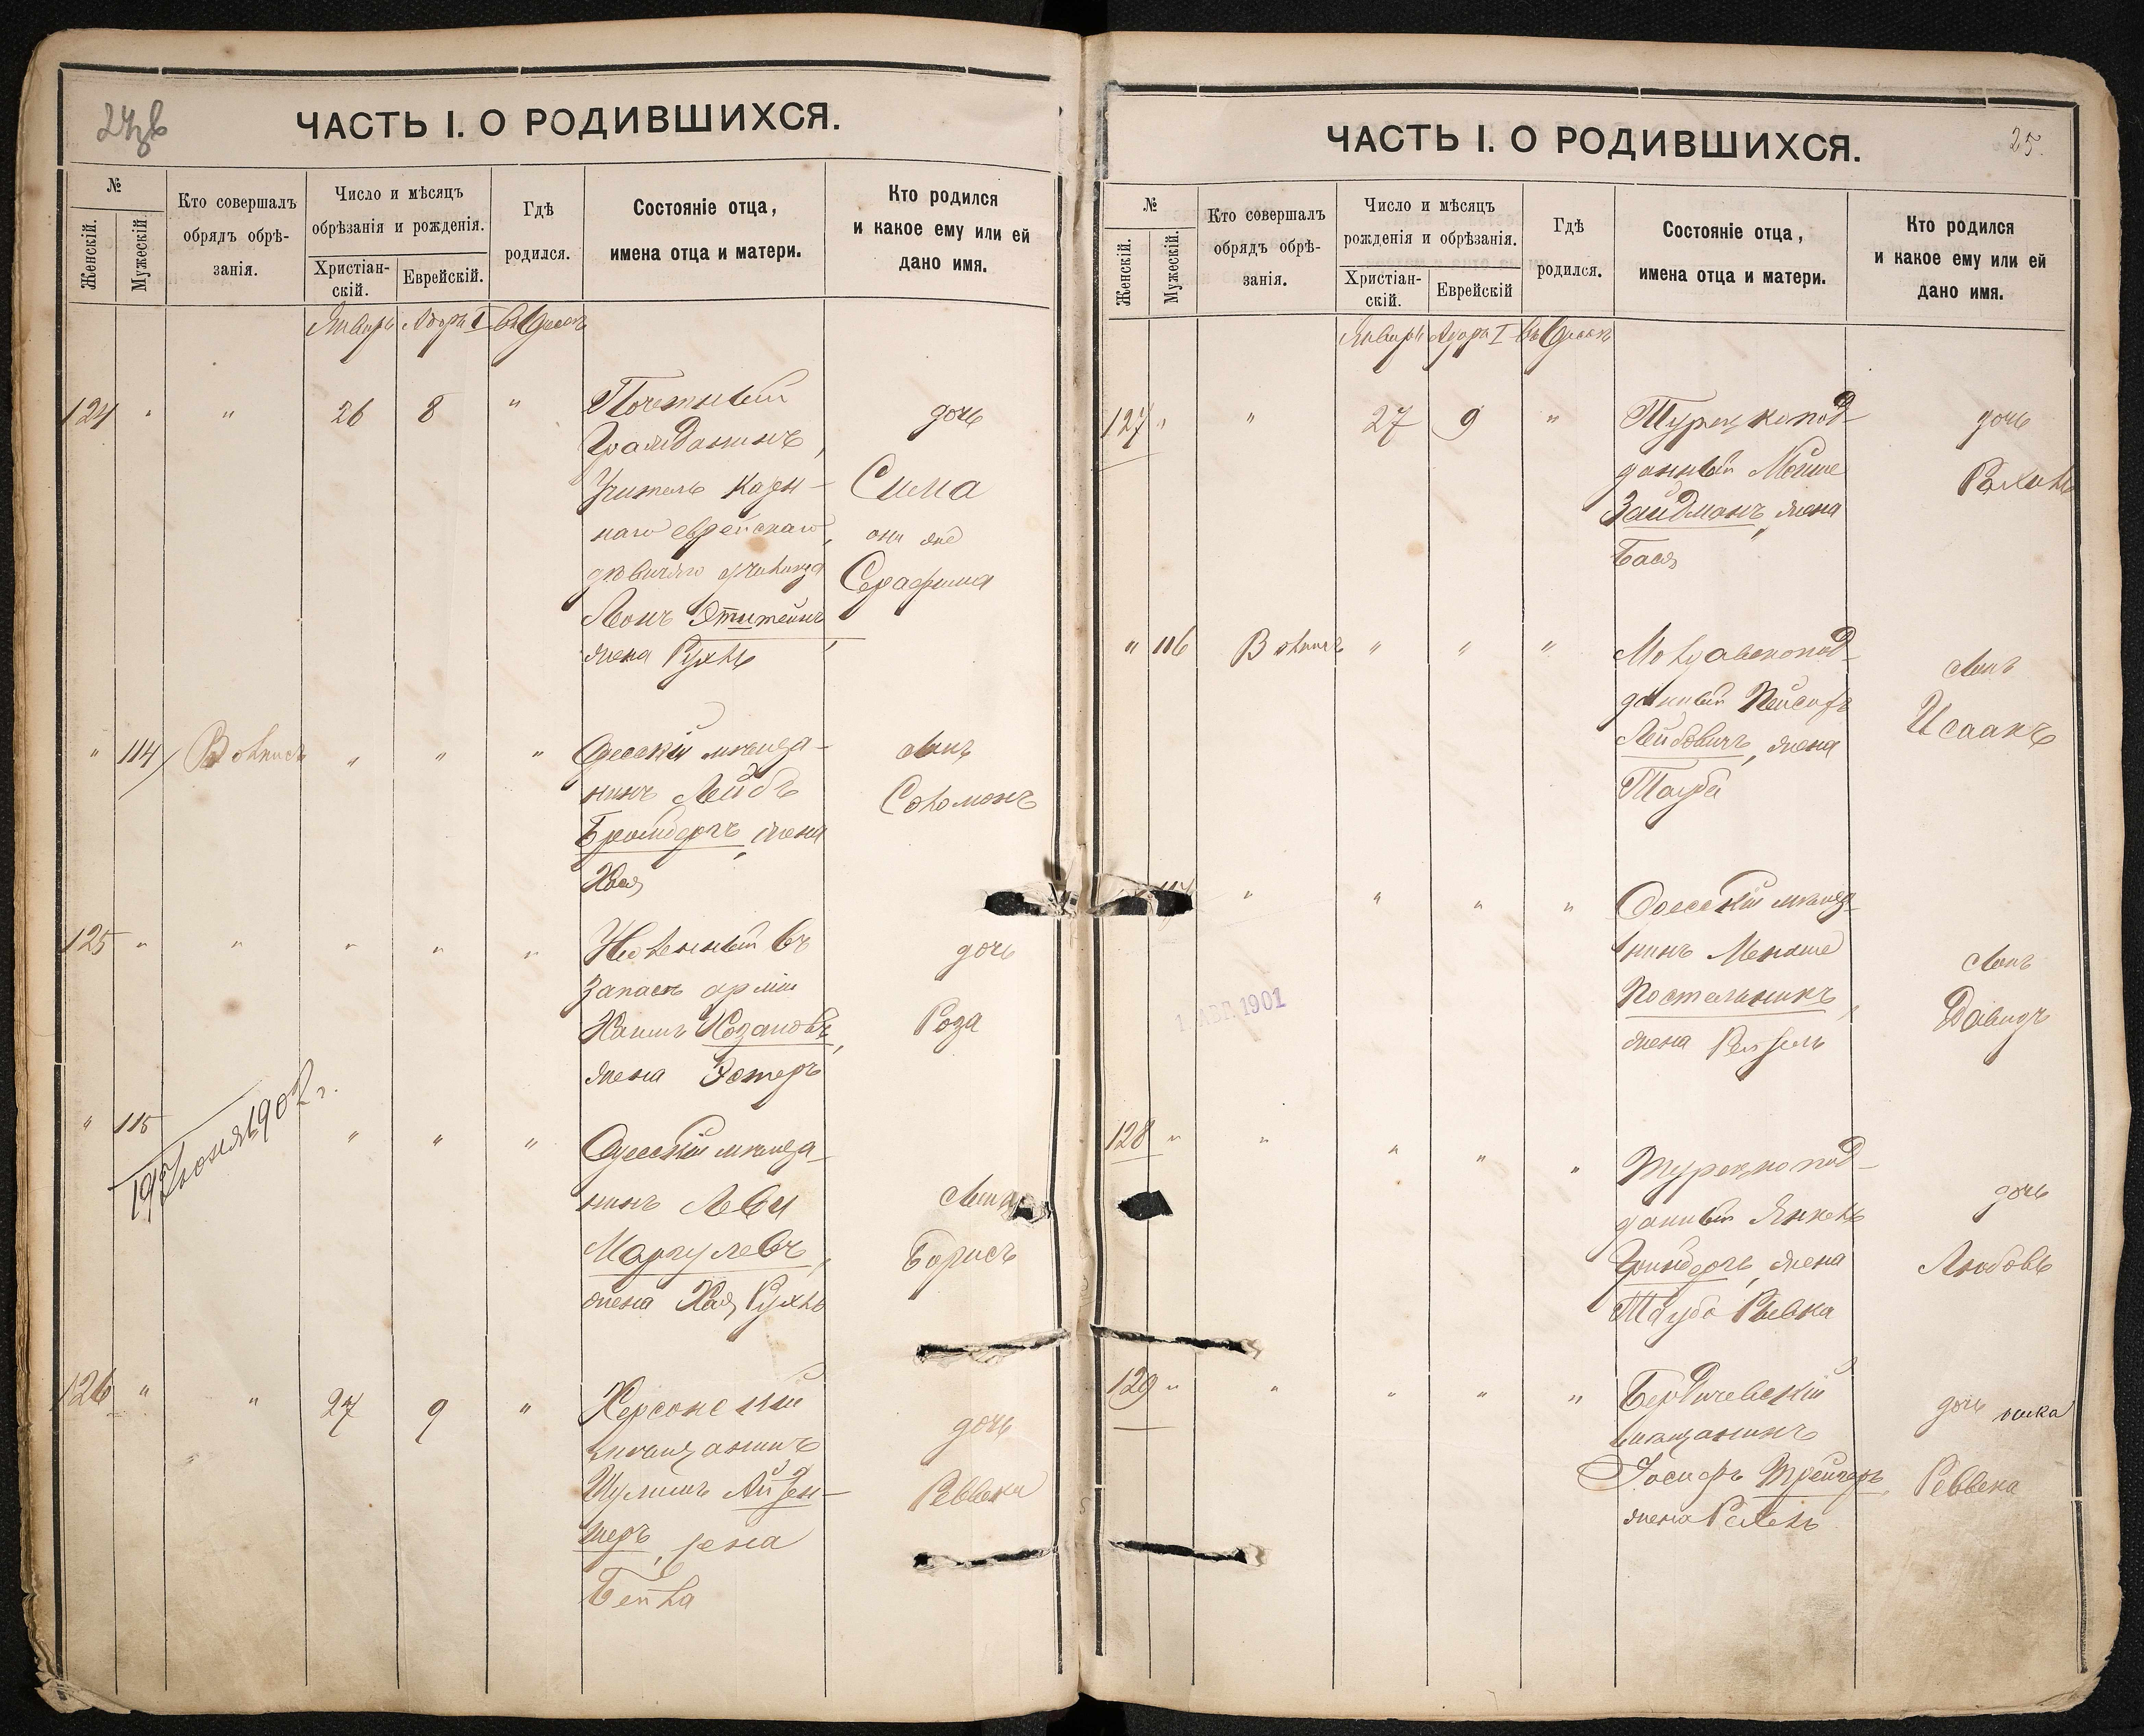 ЧАСТЬ I. О РОДИВШИХСЯ.
№
Женскій.
Мужескій
Кто совершалъ
обрядъ обрѣ-
занія.
Число и мѣсяцъ
обрѣзанія и рожденія.
Христіан-
скій.
Еврейскій.
Гдѣ
родился.
Состояніе отца,
имена отца и матери.
Кто родился
и какое ему или ей
дано имя.
Январь Адаръ I въ Одессѣ
124 " " 26 8 "
Почетный
Гражданинъ,
Учитель казен-
наго еврейскаго
дѣвичьяго училища
Леонъ Этштейнъ,
жена Рухль
дочь
Сима
она же
Серафима
" 114 " " "
Одесскій мѣща-
нинъ Лейбъ
Бронбергъ, жена
Хая
сынъ
Соломонъ
125 " " " " "
Уволенный въ
запасъ арміи
Хаимъ Хозановъ,
жена Эстеръ
дочь
Роза
" 115 " " "
19 Іюня 1902 г.
Одесскій мѣща-
нинъ Леви
Маргулевъ,
жена Хая Рухль
сынъ
Борисъ
126 " " 27 9 "
Херсонскій
мѣщанинъ
Шулимъ Айзен-
шеръ, жена
Бейла
дочь
Ревека
ЧАСТЬ I. О РОДИВШИХСЯ.
25.
№
Женскій.
Мужескій.
Кто совершалъ
обрядъ обрѣ-
занія.
Число и мѣсяцъ
рожденія и обрѣзанія.
Христіан-
скій.
Еврейскій
Гдѣ
родился.
Состояніе отца,
имена отца и матери.
Кто родился
и какое ему или ей
дано имя.
Январь Адаръ I въ Одессѣ
127 " " 27 9 "
Турецкопод-
данный Мойше
Зайдманъ, жена
Бася
дочь
Рахиль
" 116 " " "
Молдавскопод-
данный
Лейбовичъ, жена
Тауба
сынъ
Исаакъ
" " " "
Одесскій мѣща-
нинъ Менаше
Постельникъ,
жена Рейзель
сынъ
Давидъ
1901
128 " " " " "
Турецкопод-
данный Янкель
Гринбергъ, жена
Тауба Рывка
дочь
Любовь
129 " " " " "
Бердичевскій
мѣщанинъ
Іосифъ Трейгеръ,
жена Рейзль
дочь
Реввека